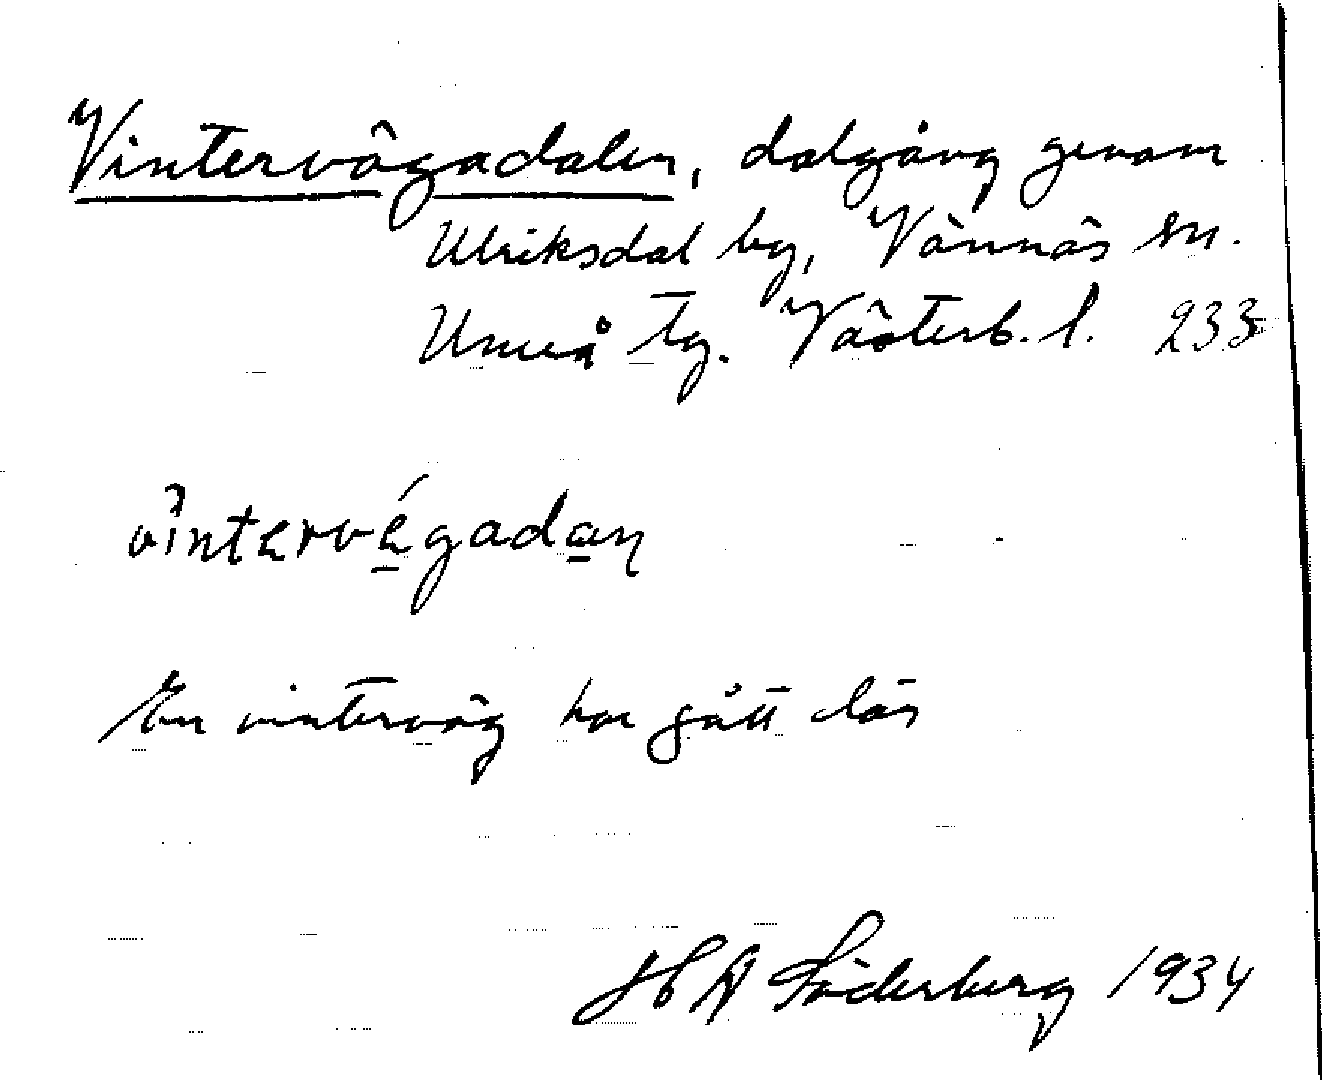 Vintervägadalen, dalgång genom
Ulriksdal by, Vännäs sn.
Umeå tg. Västerb. l. 233
vintervégadan
En vinterväg har gått där
H A Söderberg 1934